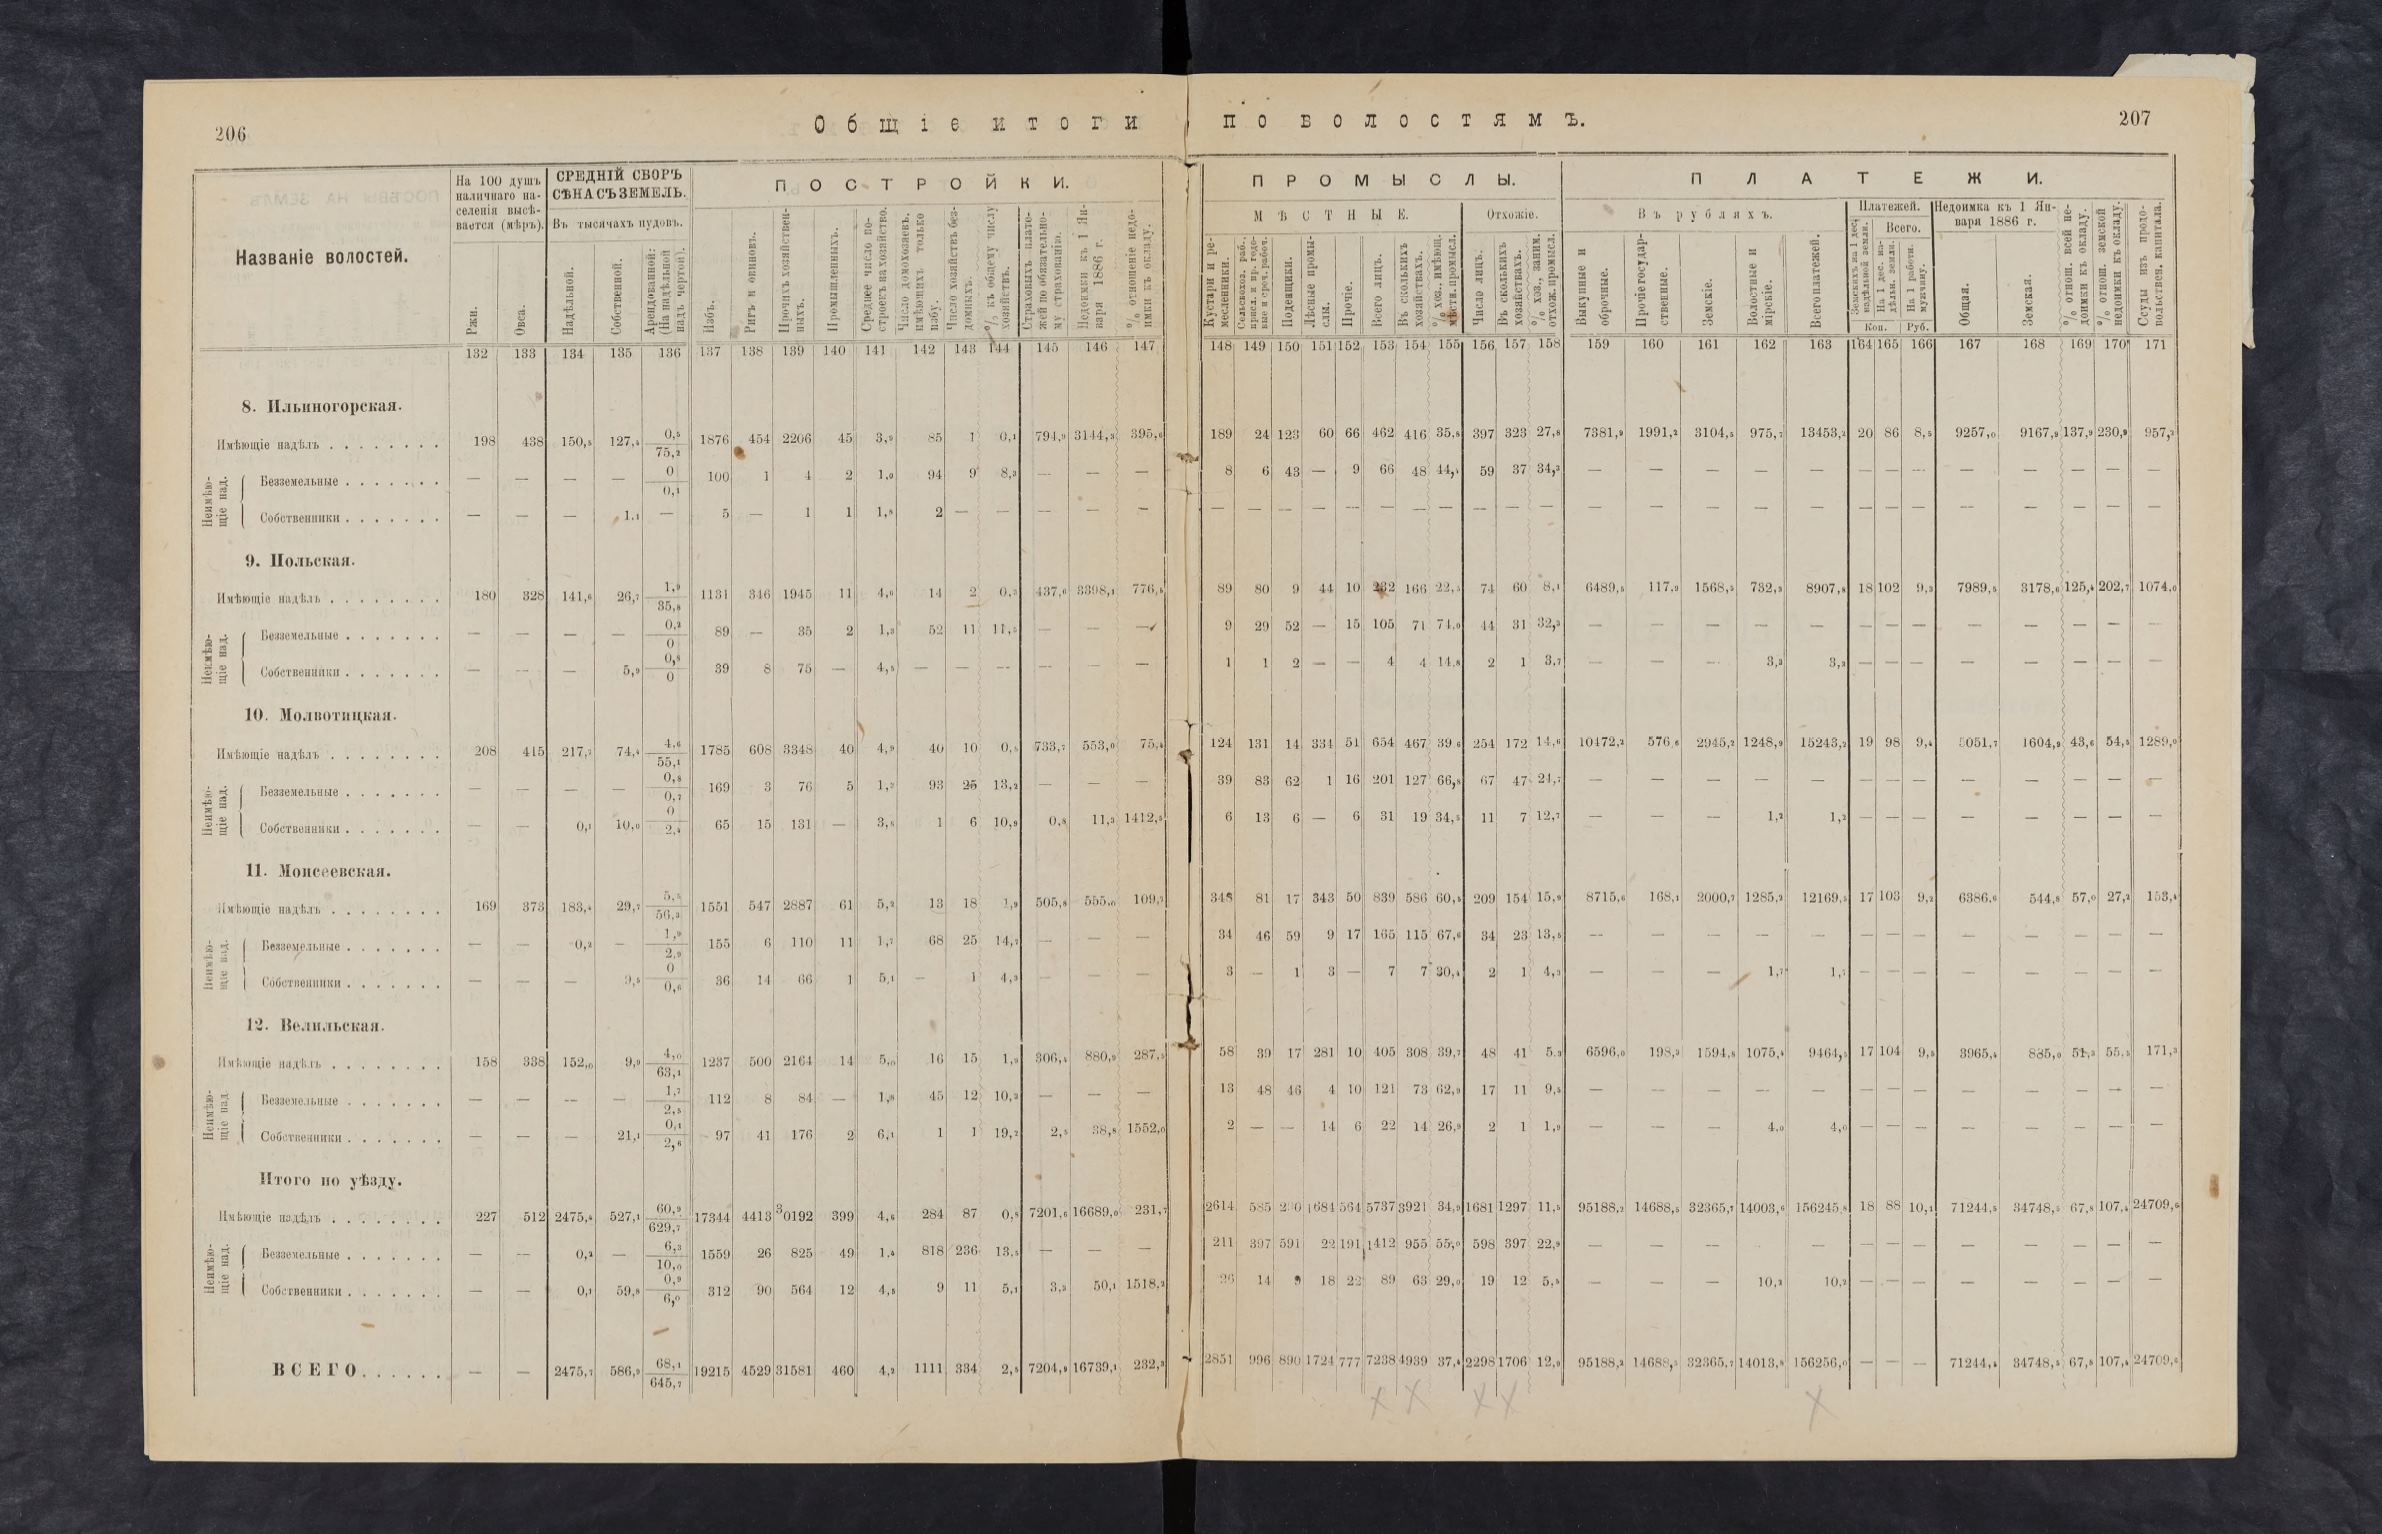 206
Общіе итоги
по волостямъ.
207
Названіе волостей.
На 100 душъ наличнаго населенія высѣвается (мѣръ).
СРЕДНІЙ СБОРЪ СѢНА СЪ ЗЕМЕЛЬ.
Въ тысячахъ пудовъ.
ПОСТРОЙКИ.
ПРОМЫСЛЫ.
МѢСТНЫЕ.
Отхожіе.
ПЛАТЕЖИ.
Въ рубляхъ.
Платежей.
Всего.
Недоимка къ 1 Января 1886 г.
Ржи.
Овса.
Надѣльной.
Собственной.
Арендованной: (На надѣльной надъ чертой).
Избъ.
Ригъ и овиновъ.
Прочихъ хозяйственныхъ.
Промышленныхъ.
Среднее число построекъ на хозяйство.
Число домохозяевъ, имѣющихъ только избу.
Число хозяйствъ бездомныхъ.
% къ общему числу хозяйствъ.
Страховыхъ платежей по обязательному страхованію.
Недоимки къ 1 Января 1886 г.
% отношеніе недоимки къ окладу.
Кустари и ремесленники.
Сельскохоз. раб., присл. и пр. годовые и сроч. рабоч.
Поденщики.
Лѣсные промыслы.
Прочіе.
Всего лицъ.
Въ сколькихъ хозяйствахъ.
% хоз., имѣющ. мѣстн. промысл.
Число лицъ.
Въ сколькихъ хозяйствахъ.
% хоз. заним. отхож. промысл.
Выкупные и оброчные.
Прочіе государственные.
Земскіе.
Волостные и мірскіе.
Всего платежей.
Земскихъ на 1 дес. надѣльной земли.
На 1 дес. надѣльн. земли.
На 1 работн. мужчину.
Коп.
Руб.
Общая.
Земская.
% отнош. всей недоимки къ окладу.
% отнош. земской недоимки къ окладу.
Ссуды изъ продовольствен. капитала.
132 133 134 135 136 137 138 139 140 141 142 143 144 145 146 147 148 149 150 151 152 153 154 155 156 157 158 159 160 161 162 163 164 165 166 167 168 169 170 171
8. Ильиногорская.
Имѣющіе надѣлъ . . . . . . . . 198 438 150,5 127,4 0,5/75,2 1876 454 2206 45 3,9 85 1 0,1 794,9 3144,3 395,6 189 24 123 60 66 462 416 35,8 397 323 27,8 7381,9 1991,2 3104,5 975,7 13453,2 20 86 8,5 9257,0 9167,9 137,9 230,9 957,2
Неимѣющіе над.
Безземельные . . . . . . . — — — — 0/0,1 100 1 4 2 1,0 94 9 8,3 — — — 8 6 43 — 9 66 48 44,4 59 37 34,3 — — — — — — — — — — — — —
Собственники . . . . . . . — — — 1,1 — 5 — 1 1 1,8 2 — — — — — — — — — — — — — — — — — — — — — — — — — — — — —
9. Польская.
Имѣющіе надѣлъ . . . . . . . . 180 328 141,6 26,7 1,9/35,8 1131 346 1945 11 4,6 14 2 0,3 437,6 3398,1 776,5 89 80 9 44 10 232 166 22,5 74 60 8,1 6489,5 117,9 1568,5 732,3 8907,8 18 102 9,3 7989,5 3178,6 125,4 202,7 1074,0
Неимѣющіе над.
Безземельные . . . . . . . — — — — 0,2/0 89 — 35 2 1,3 52 11 11,5 — — — 9 29 52 — 15 105 71 74,0 44 31 32,3 — — — — — — — — — — — — —
Собственники . . . . . . . — — — 5,9 0,8/0 39 8 75 — 4,5 — — — — — — 1 1 2 — — 4 4 14,8 2 1 3,7 — — — 3,3 3,3 — — — — — — — —
10. Молвотицкая.
Имѣющіе надѣлъ . . . . . . . . 208 415 217,2 74,4 4,6/55,1 1785 608 3348 40 4,9 40 10 0,8 733,7 553,0 75,4 124 131 14 334 51 654 467 39,6 254 172 14,6 10472,2 576,6 2945,2 1248,9 15243,2 19 98 9,4 5051,7 1604,9 43,6 54,5 1289,0
Неимѣющіе над.
Безземельные . . . . . . . — — — — 0,8/0,7 169 3 76 5 1,2 93 25 13,2 — — — 39 83 62 1 16 201 127 66,8 67 47 24,7 — — — — — — — — — — — — —
Собственники . . . . . . . — — 0,1 10,0 0/2,4 65 15 131 — 3,8 1 6 10,9 0,8 11,3 1412,5 6 13 6 — 6 31 19 34,5 11 7 12,7 — — — 1,2 1,2 — — — — — — — —
11. Моисеевская.
Имѣющіе надѣлъ . . . . . . . . 169 373 183,4 29,7 5,5/56,3 1551 547 2887 61 5,2 13 18 1,9 505,8 555,0 109,7 348 81 17 343 50 839 586 60,5 209 154 15,9 8715,6 168,1 2000,7 1285,2 12169,5 17 103 9,2 6386,6 544,8 57,0 27,2 153,4
Неимѣющіе над.
Безземельные . . . . . . . — — 0,2 — 1,9/2,9 155 6 110 11 1,7 68 25 14,7 — — — 34 46 59 9 17 165 115 67,6 34 23 13,5 — — — — — — — — — — — — —
Собственники . . . . . . . — — — 9,5 0/0,6 36 14 66 1 5,1 — 1 4,3 — — — 3 — 1 3 — 7 7 30,4 2 1 4,3 — — — 1,7 1,7 — — — — — — — —
12. Велильская.
Имѣющіе надѣлъ . . . . . . . . 158 338 152,0 9,9 4,0/63,1 1237 500 2164 14 5,0 16 15 1,9 306,4 880,9 287,5 58 39 17 281 10 405 308 39,7 48 41 5,3 6596,0 198,3 1594,8 1075,4 9464,5 17 104 9,5 3965,4 885,0 51,3 55,5 171,3
Неимѣющіе над.
Безземельные . . . . . . . — — — — 1,7/2,5 112 8 84 — 1,8 45 12 10,3 — — — 13 48 46 4 10 121 73 62,9 17 11 9,5 — — — — — — — — — — — — —
Собственники . . . . . . . — — — 21,1 0,1/2,6 97 41 176 2 6,1 1 1 19,2 2,5 38,8 1552,0 2 — — 14 6 22 14 26,9 2 1 1,9 — — — 4,0 4,0 — — — — — — — —
Итого по уѣзду.
Имѣющіе надѣлъ . . . . . . . . 227 512 2475,4 527,1 60,9/629,7 17344 4413 30192 399 4,6 284 87 0,8 7201,6 16689,0 231,7 2614 585 290 1684 564 5737 3921 34,9 1681 1297 11,5 95188,2 14688,5 32365,7 14003,6 156245,8 18 88 10,1 71244,5 34748,5 67,8 107,4 24709,6
Неимѣющіе над.
Безземельные . . . . . . . — — 0,2 — 6,3/10,0 1559 26 825 49 1,4 818 236 13,5 — — — 211 397 591 22 191 1412 955 55,0 598 397 22,9 — — — — — — — — — — — — —
Собственники . . . . . . . — — 0,1 59,8 0,9/6,0 312 90 564 12 4,5 9 11 5,1 3,3 50,1 1518,2 26 14 9 18 22 89 63 29,0 19 12 5,5 — — — 10,2 10,2 — — — — — — — —
ВСЕГО . . . . . . — — 2475,7 586,9 68,1/645,7 19215 4529 31581 460 4,2 1111 334 2,5 7204,9 16739,1 232,3 2851 996 890 1724 777 7238 4939 37,4 2298 1706 12,9 95188,2 14688,5 32365,7 14013,8 156256,0 — — — 71244,4 34748,5 67,8 107,4 24709,6